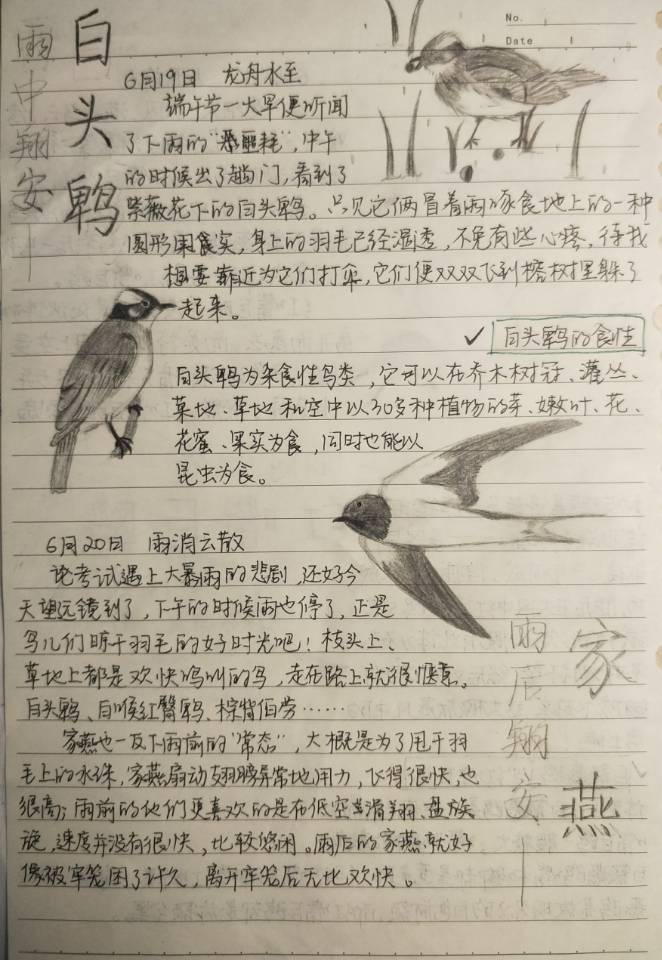 No.
Date
雨中翔安
白头鹎
6月19日 龙舟水至
端午节一大早便听闻
了下雨的“噩耗”,中午
的时候出了趟门,看到了
紫薇花下的白头鹎。只见它俩冒着雨啄食地上的一种
圆形果实,身上的羽毛已经湿透,不免有些心疼,待我
想要靠近为它们打伞,它们便双双飞到榕树里躲了
起来。
✓ 白头鹎的食性
白头鹎为杂食性鸟类,它可以在乔木树冠、灌丛、
草地、草地和空中以30多种植物的芽、嫩叶、花、
花蜜、果实为食,同时也能以
昆虫为食。
6月20日 雨消云散
论考试遇上大暴雨的悲剧,还好今
天望远镜到了,下午的时候雨也停了,正是
鸟儿们晾干羽毛的好时光吧!枝头上、
草地上都是欢快鸣叫的鸟,走在路上就很惬意。
白头鹎、白喉红臀鹎、棕背伯劳……
家燕也一反下雨前的“常态”,大概是为了甩干羽
毛上的水珠,家燕扇动翅膀异常地用力,飞得很快,也
很高;雨前的他们更喜欢的是在低空滑翔、盘旋
旋,速度并没有很快,比较悠闲。雨后的家燕就好
像被牢笼困了许久,离开牢笼后无比欢快。
雨后翔安
家燕